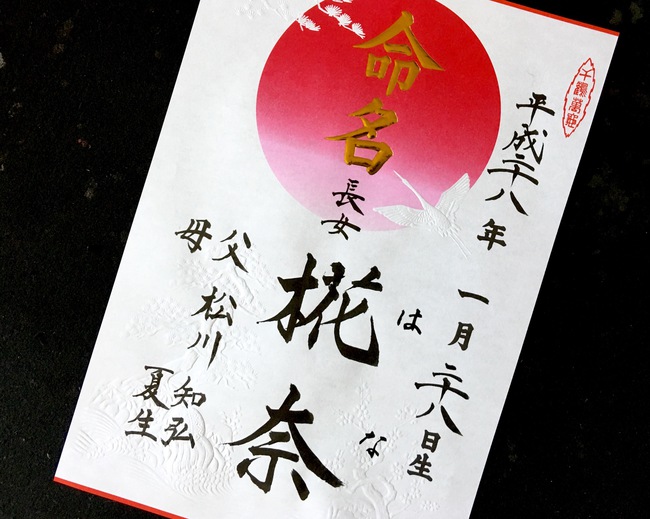 千鶴萬亀
平成二十八年一月二十八日生
命名
長女
椛奈
はな
父 母
松川
知弘
夏生